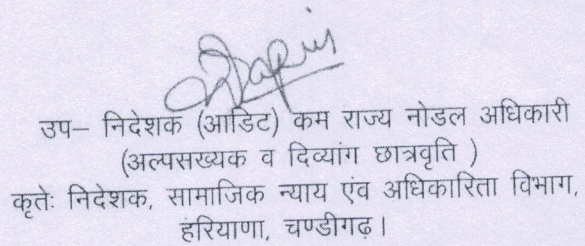 उप– निदेशक (आडिट) कम राज्य नोडल अधिकारी
(अल्पसख्यक व दिव्यांग छात्रवृति )
कृतेः निदेशक, सामाजिक न्याय एंव अधिकारिता विभाग,
हरियाणा, चण्डीगढ़।